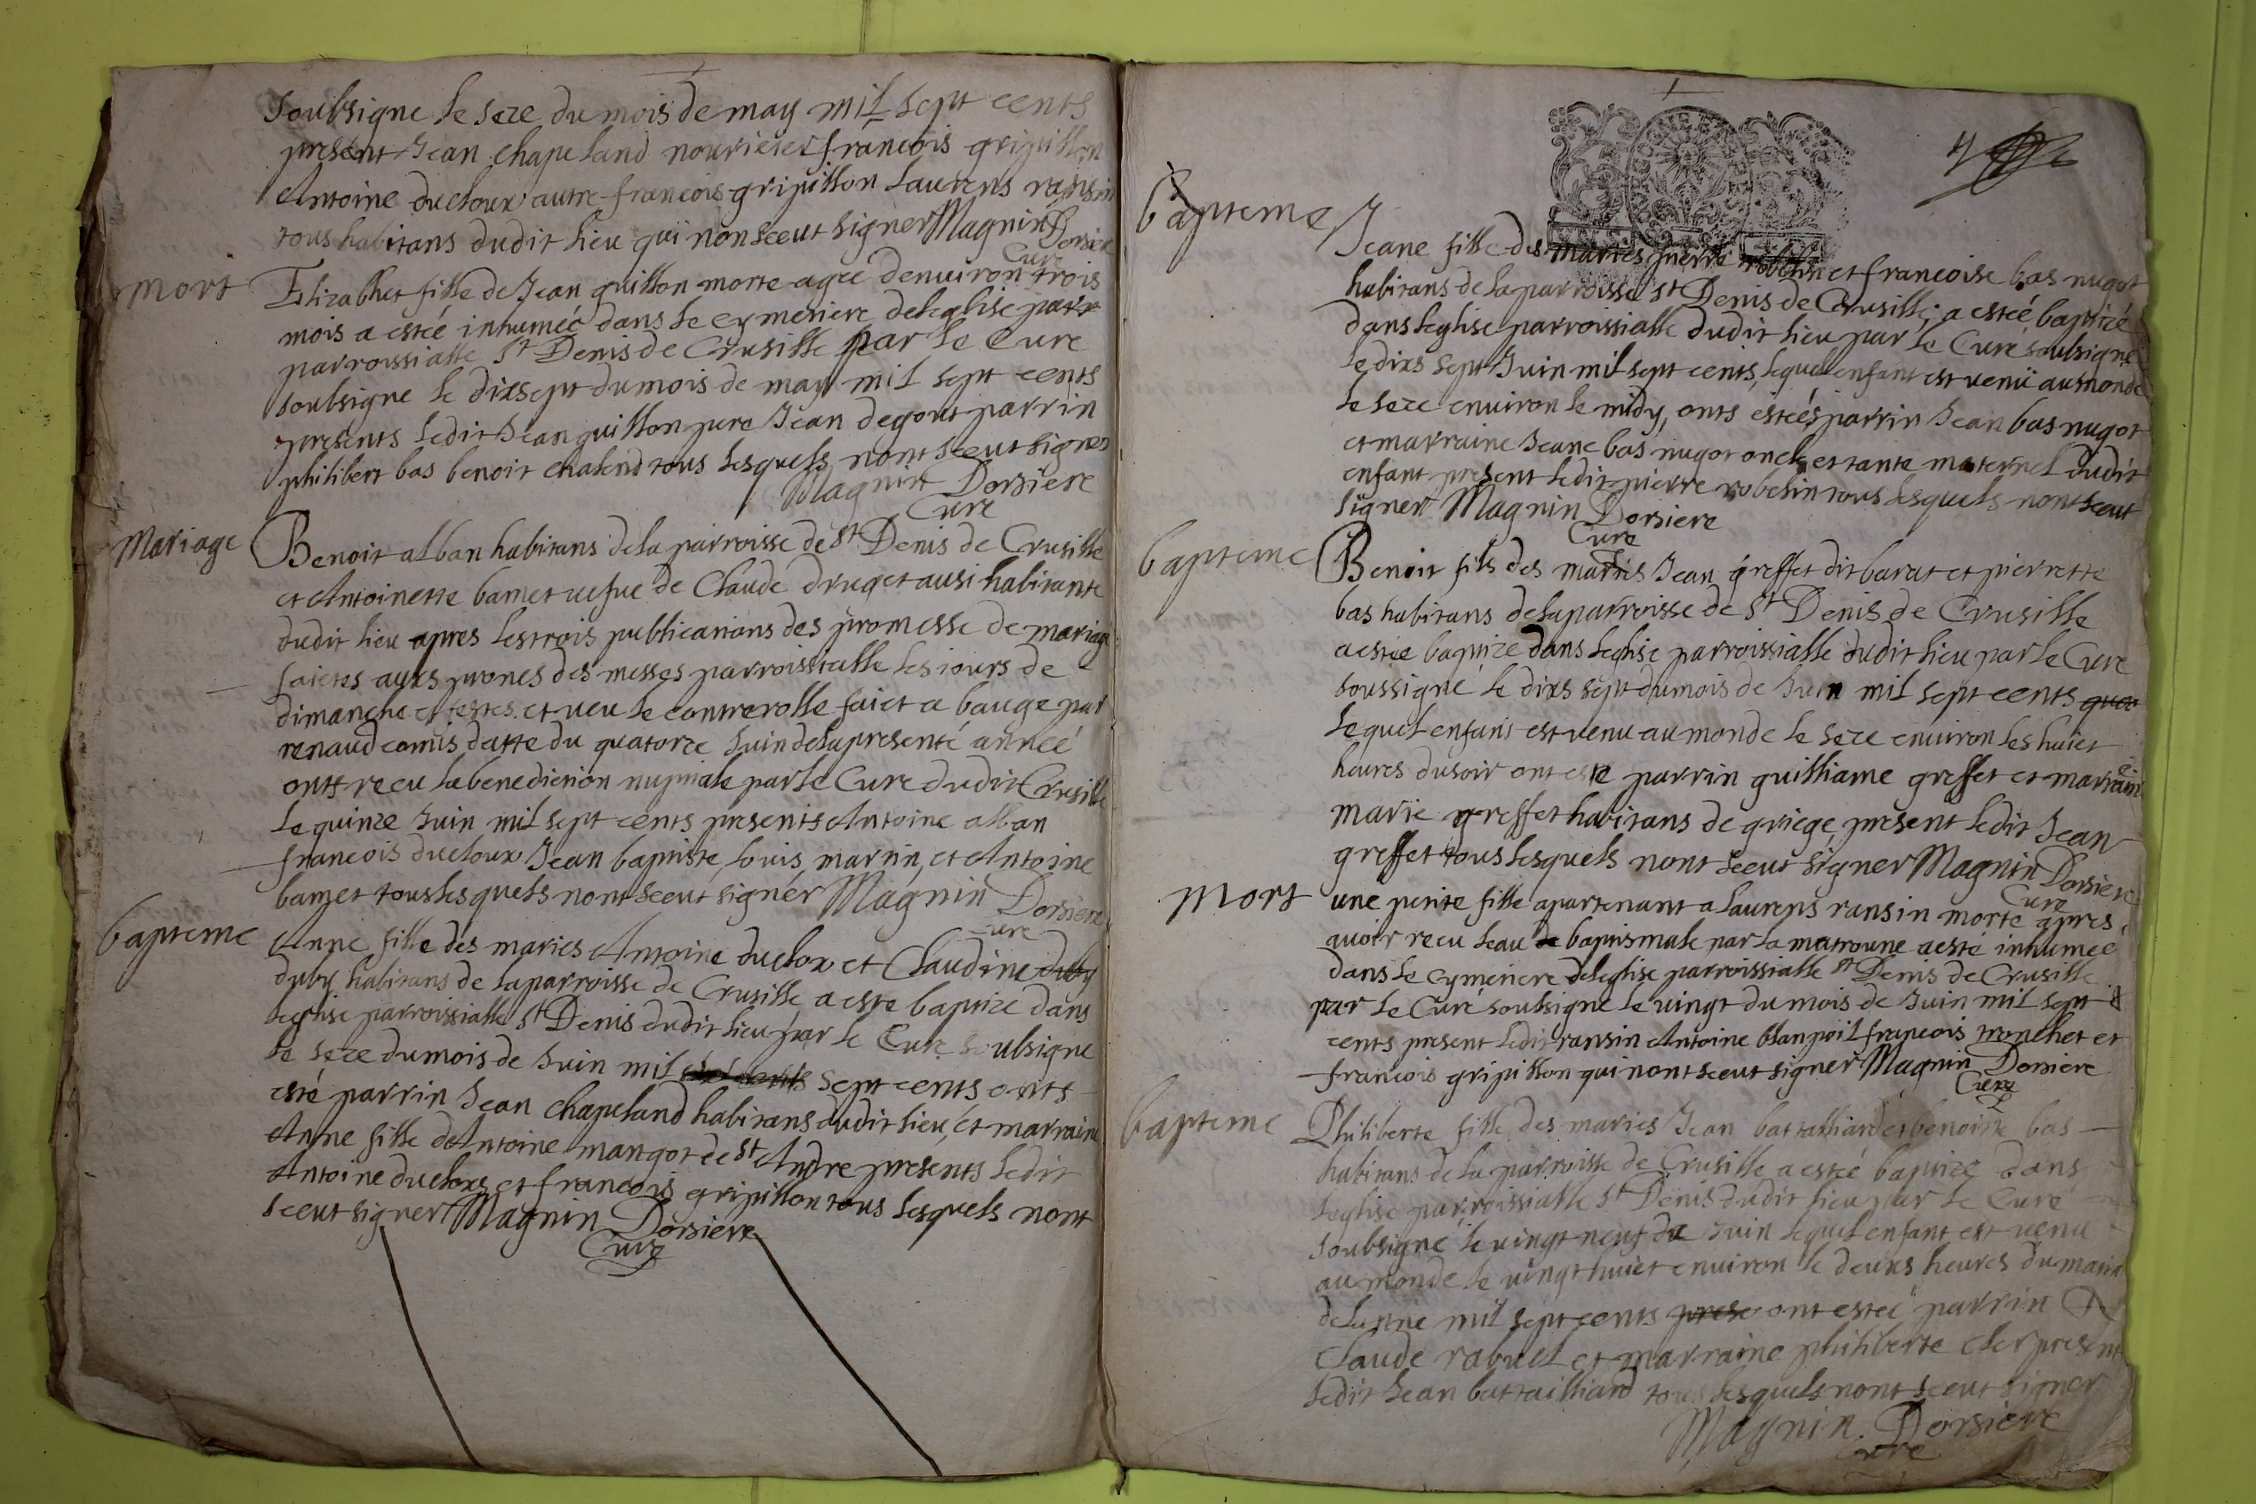 soubsigne le seze du mois de may mil sept cents
present Jean Chapeland nouricier francois gripillon
Antoine ducloux autre francois gripillon Laurens ransin
tous habitans dudit lieu qui non sceut signer Magnin Dorsiere
Cure
mort
Elizabhet fille de Jean guillon morte agee denuiron trois
mois a esteé inhumeé dans le cymetiere deleglise parr
parroissialle St Denis de Crusille par le Cure
soubsigne le dixsept du mois de may mil sept cents
presents ledit Jean guillon pere Jean degout parrin
philibert bas benoit chalend tous lesquels nont sceut signer
Magnin Dorsiere
Cure
Mariage
Benoit alban habitans de la parroisse de St Denis de Crusille
et Antoinette bamet uefue de Claude druget ausi habitante
dudit lieu apres les trois publications des promesse de mariage
faictes auxs prones des messes parroissialle les iours de
dimanche et festes et ueu le controrolle faict a bauge par
renaud comis datte du quatorze Juin de la presente anneé
ontt recu la benediction nuptiale par le Cure dudit Crusille
le quinze Juin mil sept cents presents Antoine alban
francois ducloux Jean baptiste, louis martin, et Antoine
bamet tous lesquels nont sceut signer Magnin Dorsiere
Cure
bapteme
Anne fille des maries Antoine duclox et Claudine duby
duby habitans de la parroisse de Crusille a este baptize dans
leglise parroissialle St Denis dudit lieu par le Cure soubsigne
le seze du mois de Juin mil sept cents onts
esté parrin Jean Chapeland habitans dudit lieu, et marraine
Anne fille dAntoine mangot de St Andre presents ledit
Antoine ducloxs et francois gripillon tous lesquels nont
sceut signer Magnin Dorsiere
Cure
bapteme
Jeane fille des maries pierre robelin et francoise bas nugot
habitans de la parroisse St Denis de Crusille, a esteé baptizé
dans leglise parroissialle dudit lieu par le Curé soubsigné
le dixs sept Juin mil sept cents, lequel enfant est venü au monde
le seze enuiron le midy, onts esteés parrin Jean bas nugot
et marraine Jeane bas nugot oncle et tante maternel dudit
enfant present ledit pierre robelin tous lesquels nont sceut
signer Magnin Dorsiere
Cure
bapteme
Benoit fils des maries Jean greffet dit barat et pierrette
bas habitans de la parroisse de St Denis de Crusille
a estée baptize dans leglise parroissialle dudit lieu par le Cure
soussigné le dixs sept du mois de Juin mil sept cents
lequel enfant est venu au monde le seze enuiron les huict
heures du soir ont este parrin guilliame greffet et marraine
marie greffet habitans de griege present ledit Jean
greffet tous lesquels nont sceut signer Magnin Dorsiere
Cure
Mort
une petite fille apartenant a laurens ransin morte apres
auoir recu leau de baptismale par la matroune a esté inhumeé
dans le cymetiere deleglise parroissialle St Denis de Crusille
par le Curé soubsigne le vingt du mois de Juin mil sept
cents present ledit ransin Antoine blanpoil francois tronchet et
francois gripillon qui nont sceut signer Magnin Dorsiere
Cure
bapteme
Philiberte fille des maries Jean battailliard et benoite bas
habitans de la parroisse de Crusille a esteé baptize dans
leglise parroissialle St Denis dudit lieu par le Curé
soubsigné le vingt neuf de Juin lequel enfant est venu
au monde le vingt huict enuiron le deuxs heures du matin
de lanne mil sept cents ont esteé parrin
Claude rabuel et marraine philiberte cler present
ledit Jean battailliard tous lesquels nont sceut signer
Magnin Dorsiere
Cure